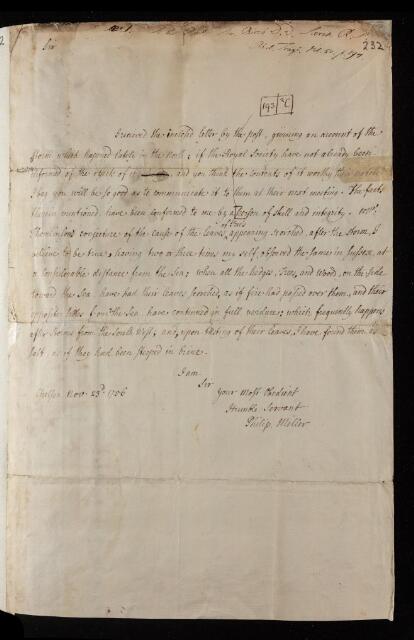 232
Sir
193 | 3C
I received the inclosed letter by the post, giving an account of the
storm which hapened lately in the North; if the Royal Society have not already been
informed of the effects of it, and you think the Contents of it worthy their notice
I beg you will be so good as to communicate it to them at their next meeting. The facts
therein mentioned have been confirmed to me by a Person of Skill and integrity.
Thomlinsons conjecture of the cause of the leaves of trees appearing scorched, after the Storm, I
believe to be true; having two or three times my self, observed the same in Sussex, at
a Considerable distance from the Sea; when all the hedges, Trees, and Wood, on the side
toward the Sea have had their leaves scorched, as if fire had passed over them, and their
opposite sides from the Sea, have continued in full verdure; which frequently happens
after Storms from the South West; and, upon tasting of their leaves, I have found them as
salt, as if they had been steeped in brine.
I am
Sir
Chelsea Nov. 23d 1756
Your Most Obedient
Humble Servant
Philip Miller